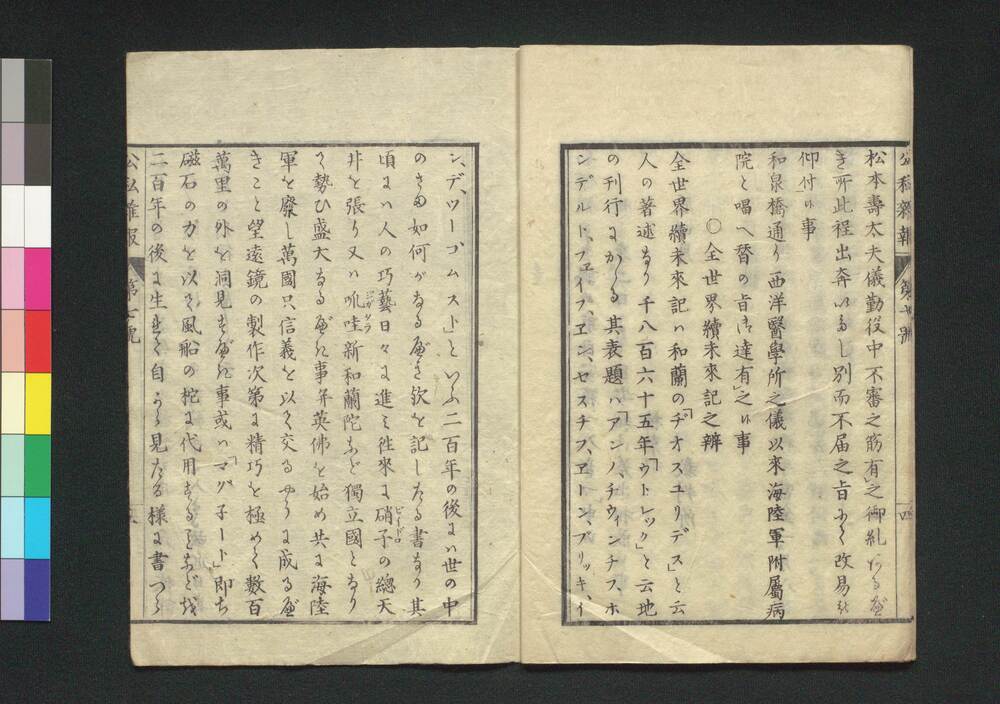 公私雜報
第七號
松本壽太夫儀勤役中不審之筋有之御糺しある處
き所此程出奔いたし別而不届之旨にて改易被
仰付候事
和泉橋通り西洋醫學所之儀以來海陸軍附屬病
院と唱へ替の旨御達有之候事
○全世界續未來記之辨
全世界續未來記ハ和蘭の「ヂオスユリデス」と云
人の著述なり千八百六十五年「ウトレック」と云地
の刊行にかゝる其表題ハ「アンノ、チウィンチス、ホ
ンデルト、フェイフ、エン、セスチフ、エト、ン、ブリッキ、イ
四
ン、デ、ツーコムスト」といふ二百年の後にハ世の中
のさま如何がなるべき歟を記したる書なり其
頃にハ人の巧藝日々に進ミ徃來に硝子の總天
ビイドロ
井を張り又ハ呱哇新和蘭陀など獨立國となり
ジガタラ
て勢ひ盛大なるべき事并英佛を始め共に海陸
軍を廢し萬國只信義を以て交るやうに成るべ
きこと望遠鏡の製作次第に精巧を極めて數百
萬里の外を洞見すべき事或ハ「マグ子ート」即ち
磁石の力を以て風船の柁に代用することなど我
二百年の後に生れて自から見たる様に書つら
公私雜報
第七號
五